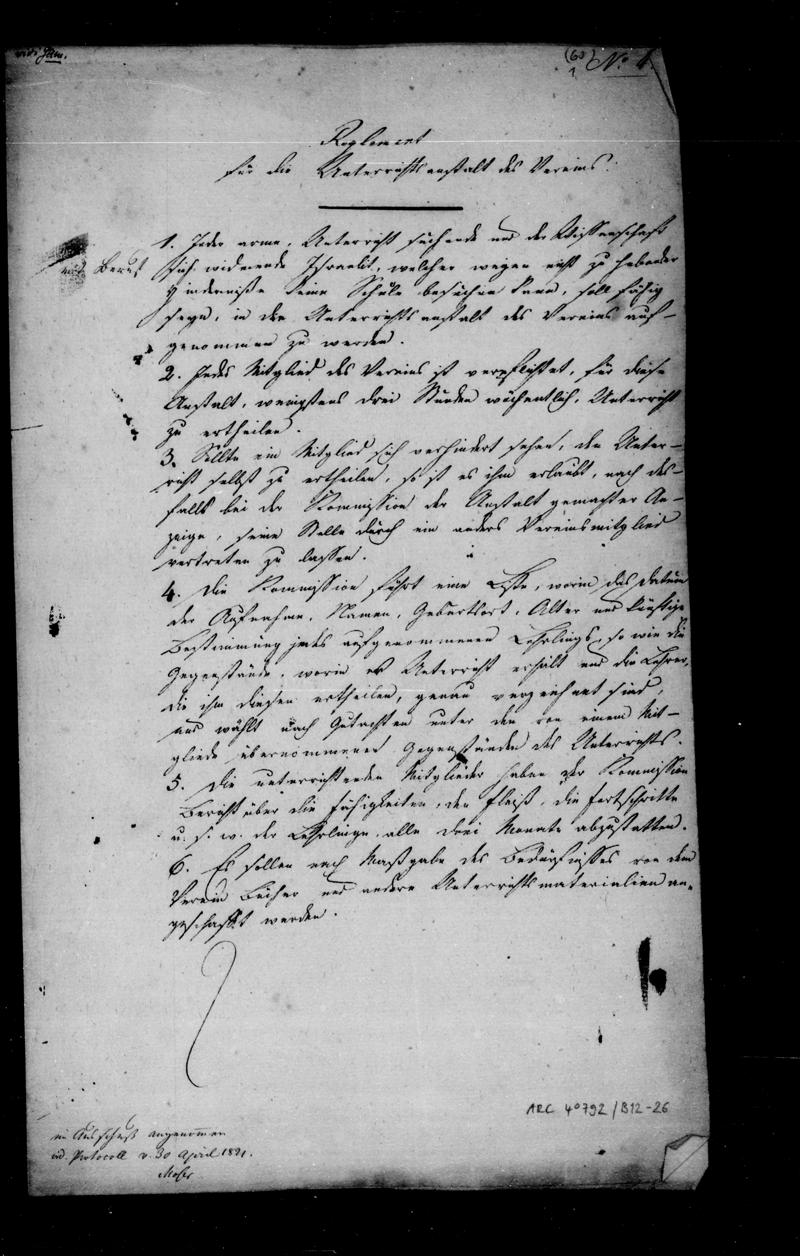 (60)
1
No 1.
Reglement
für die Unterrichtsanstalt des Vereins.
1. Jeder arme, Unterricht suchende und der Wissenschaft
und Beruf
sich widmende Israelit, welcher wegen nicht zu hebender
Hindernisse keine Schule besuchen kann, soll fähig
seyn, in der Unterrichtsanstalt des Vereins auf-
genommen zu werden.
2. Jedes Mitglied des Vereins ist verpflichtet, für diese
Anstalt, wenigstens drei Stunden wöchentlich, Unterricht
zu ertheilen.
3. Sollte ein Mitglied sich verhindert sehen, den Unter-
richt selbst zu ertheilen, so ist es ihm erlaubt, nach des-
falls bei der Kommission der Anstalt gemachter An-
zeige, seine Stelle durch ein anders Vereinsmitglied
vertreten zu lassen.
4. Die Kommission führt eine Liste, worin das Datum
der Aufnahme, Namen, Geburtsort, Alter und künftige
Bestimmung jedes aufgenommenen Lehrlings, so wie die
Gegenstände, worin er Unterricht erhält und die Lehrer,
die ihm diesen ertheilen, genau verzeichnet sind,
und wählt nach Gutachten unter den von einem Mit-
gliede übernommenen Gegenständen des Unterrichts.
5. Die unterrichtenden Mitglieder haben der Kommission
Bericht über die Fähigkeiten, den Fleiß, die Fortschritte
u. s. w. der Lehrlinge, alle drei Monate abzustatten.
6. Es sollen nach Maßgabe des Bedürfnisses von dem
Verein Bücher und andere Unterrichtsmaterialien an-
geschafft werden.
ARC 4º792/B12-26
im Ausschuß angenommen
vid. Protocoll v. 30 April 1821.
Moser